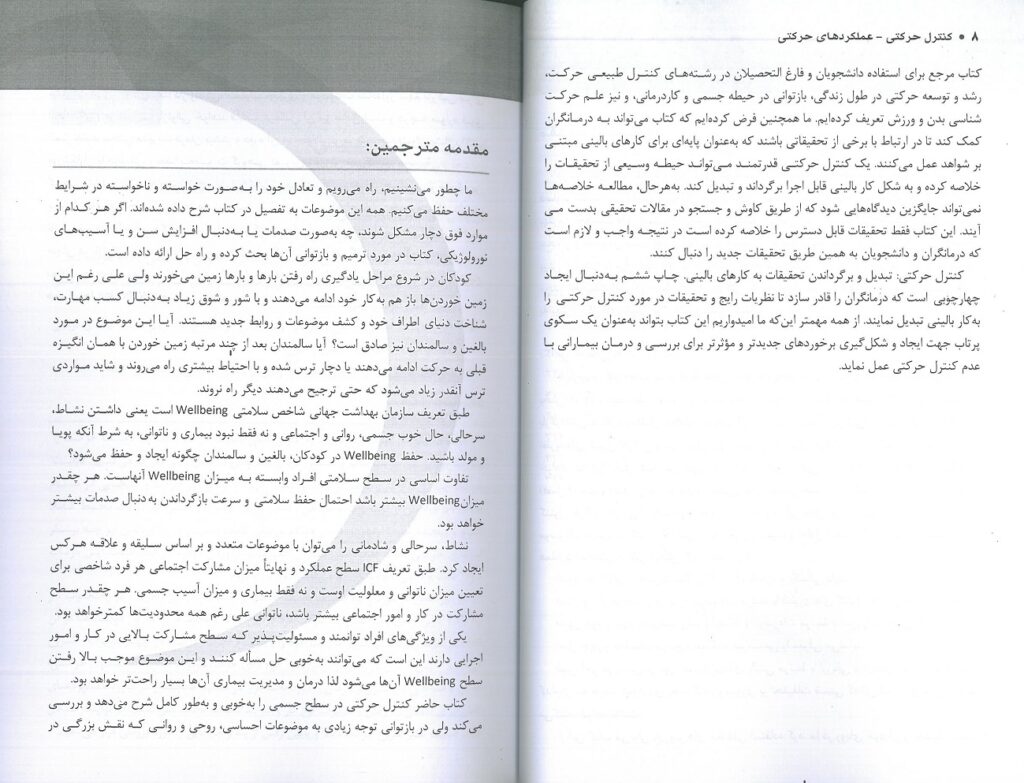 ۸ ● کنترل حرکتی - عملکردهای حرکتی
کتاب مرجع برای استفاده دانشجویان و فارغ التحصیلان در رشته‌های کنترل طبیعی حرکت،
رشد و توسعه حرکتی در طول زندگی، بازتوانی در حیطه جسمی و کاردرمانی، و نیز علم حرکت
شناسی بدن و ورزش تعریف کرده‌ایم. ما همچنین فرض کرده‌ایم که کتاب می‌تواند به درمانگران
کمک کند تا در ارتباط با برخی از تحقیقاتی باشند که به‌عنوان پایه‌ای برای کارهای بالینی مبتنی
بر شواهد عمل می‌کنند. یک کنترل حرکتی قدرتمند می‌تواند حیطه وسیعی از تحقیقات را
خلاصه کرده و به شکل کار بالینی قابل اجرا برگرداند و تبدیل کند. به‌هرحال، مطالعه خلاصه‌ها
نمی‌تواند جایگزین دیدگاه‌هایی شود که از طریق کاوش و جستجو در مقالات تحقیقی بدست می
آیند. این کتاب فقط تحقیقات قابل دسترس را خلاصه کرده است در نتیجه واجب و لازم است
که درمانگران و دانشجویان به همین طریق تحقیقات جدید را دنبال کنند.
کنترل حرکتی: تبدیل و برگرداندن تحقیقات به کارهای بالینی. چاپ ششم به‌دنبال ایجاد
چهارچوبی است که درمانگران را قادر سازد تا نظریات رایج و تحقیقات در مورد کنترل حرکتی را
به‌کار بالینی تبدیل نمایند. از همه مهمتر این‌که ما امیدواریم این کتاب بتواند به‌عنوان یک سکوی
پرتاب جهت ایجاد و شکل‌گیری برخوردهای جدیدتر و مؤثرتر برای بررسی و درمان بیمارانی با
عدم کنترل حرکتی عمل نماید.
مقدمه مترجمین:
ما چطور می‌نشینیم، راه می‌رویم و تعادل خود را به‌صورت خواسته و ناخواسته در شرایط
مختلف حفظ می‌کنیم. همه این موضوعات به تفصیل در کتاب شرح داده شده‌اند. اگر هر کدام از
موارد فوق دچار مشکل شوند، چه به‌صورت صدمات یا به‌دنبال افزایش سن و یا آسیب‌های
نورولوژیکی، کتاب در مورد ترمیم و بازتوانی آن‌ها بحث کرده و راه حل ارائه داده است.
کودکان در شروع مراحل یادگیری راه رفتن بارها و بارها زمین می‌خورند ولی علی رغم این
زمین خوردن‌ها باز هم به‌کار خود ادامه می‌دهند و با شور و شوق زیاد به‌دنبال کسب مهارت،
شناخت دنیای اطراف خود و کشف موضوعات و روابط جدید هستند. آیا این موضوع در مورد
بالغین و سالمندان نیز صادق است؟ آیا سالمندان بعد از چند مرتبه زمین خوردن با همان انگیزه
قبلی به حرکت ادامه می‌دهند یا دچار ترس شده و با احتیاط بیشتری راه می‌روند و شاید مواردی
ترس آنقدر زیاد می‌شود که حتی ترجیح می‌دهند دیگر راه نروند.
طبق تعریف سازمان بهداشت جهانی شاخص سلامتی Wellbeing است یعنی داشتن نشاط،
سرحالی، حال خوب جسمی، روانی و اجتماعی و نه فقط نبود بیماری و ناتوانی، به شرط آنکه پویا
و مولد باشید. حفظ Wellbeing در کودکان، بالغین و سالمندان چگونه ایجاد و حفظ می‌شود؟
تفاوت اساسی در سطح سلامتی افراد وابسته به میزان Wellbeing آنهاست. هر چقدر
میزان Wellbeing بیشتر باشد احتمال حفظ سلامتی و سرعت بازگرداندن به دنبال صدمات بیشتر
خواهد بود.
نشاط، سرحالی و شادمانی را می‌توان با موضوعات متعدد و بر اساس سلیقه و علاقه هرکس
ایجاد کرد. طبق تعریف ICF سطح عملکرد و نهایتاً میزان مشارکت اجتماعی هر فرد شاخصی برای
تعیین میزان ناتوانی و معلولیت اوست و نه فقط بیماری و میزان آسیب جسمی. هر چقدر سطح
مشارکت در کار و امور اجتماعی بیشتر باشد، ناتوانی علی رغم همه محدودیت‌ها کمترخواهد بود.
یکی از ویژگی‌های افراد توانمند و مسئولیت‌پذیر که سطح مشارکت بالایی در کار و امور
اجرایی دارند این است که می‌توانند به‌خوبی حل مسأله کنند و این موضوع موجب بالا رفتن
سطح Wellbeing آن‌ها می‌شود لذا درمان و مدیریت بیماری آن‌ها بسیار راحت‌تر خواهد بود.
کتاب حاضر کنترل حرکتی در سطح جسمی را به‌خوبی و به‌طور کامل شرح می‌دهد و بررسی
می‌کند ولی در بازتوانی توجه زیادی به موضوعات احساسی، روحی و روانی که نقش بزرگی در